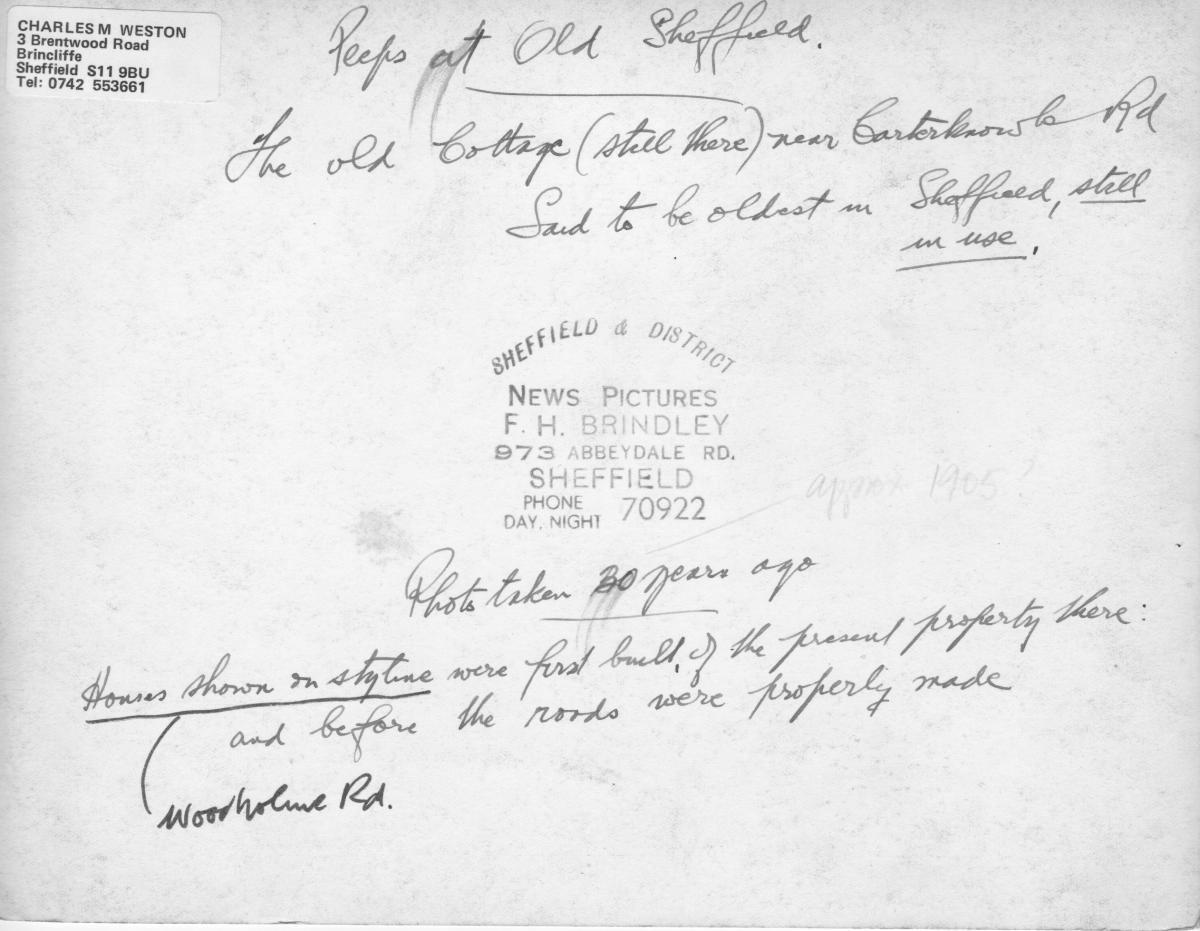 CHARLES M WESTON
3 Brentwood Road
Brincliffe
Sheffield S11 9BU
Tel: 0742 553661
Peeps at Old Sheffield.
The old Cottage (still there) near Carterknowle Rd
Said to be oldest in Sheffield, still
in use.
SHEFFIELD & DISTRICT
NEWS PICTURES
F. H. BRINDLEY
973 ABBEYDALE RD.
SHEFFIELD
PHONE
DAY. NIGHT 70922
approx 1905?
Photo taken 30 years ago
Houses shown on skyline were first built, of the present property there:
and before the roads were properly made
Woodholme Rd.